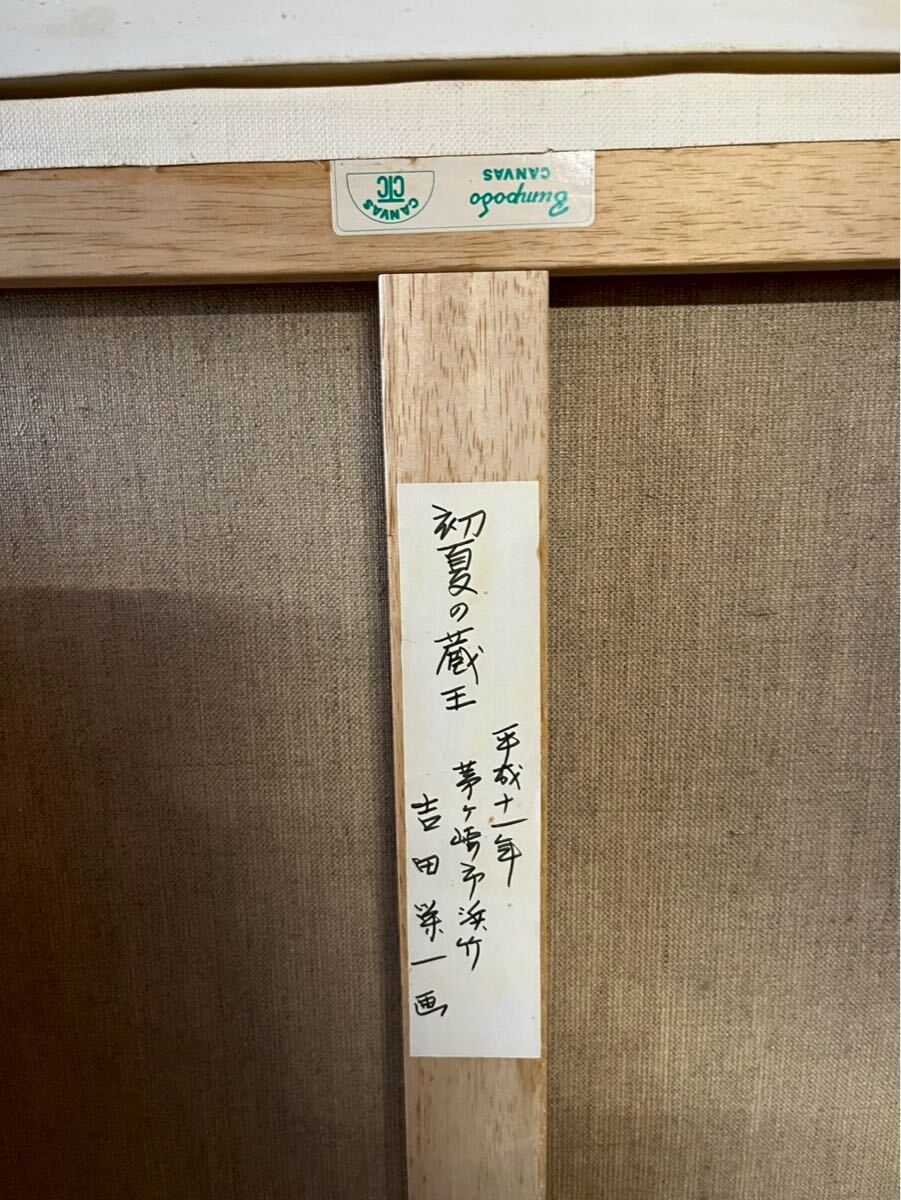 Bumpodo
CANVAS
CANVAS
CTC
初夏の蔵王
平成十一年
茅ヶ崎市浜竹
吉田栄一画